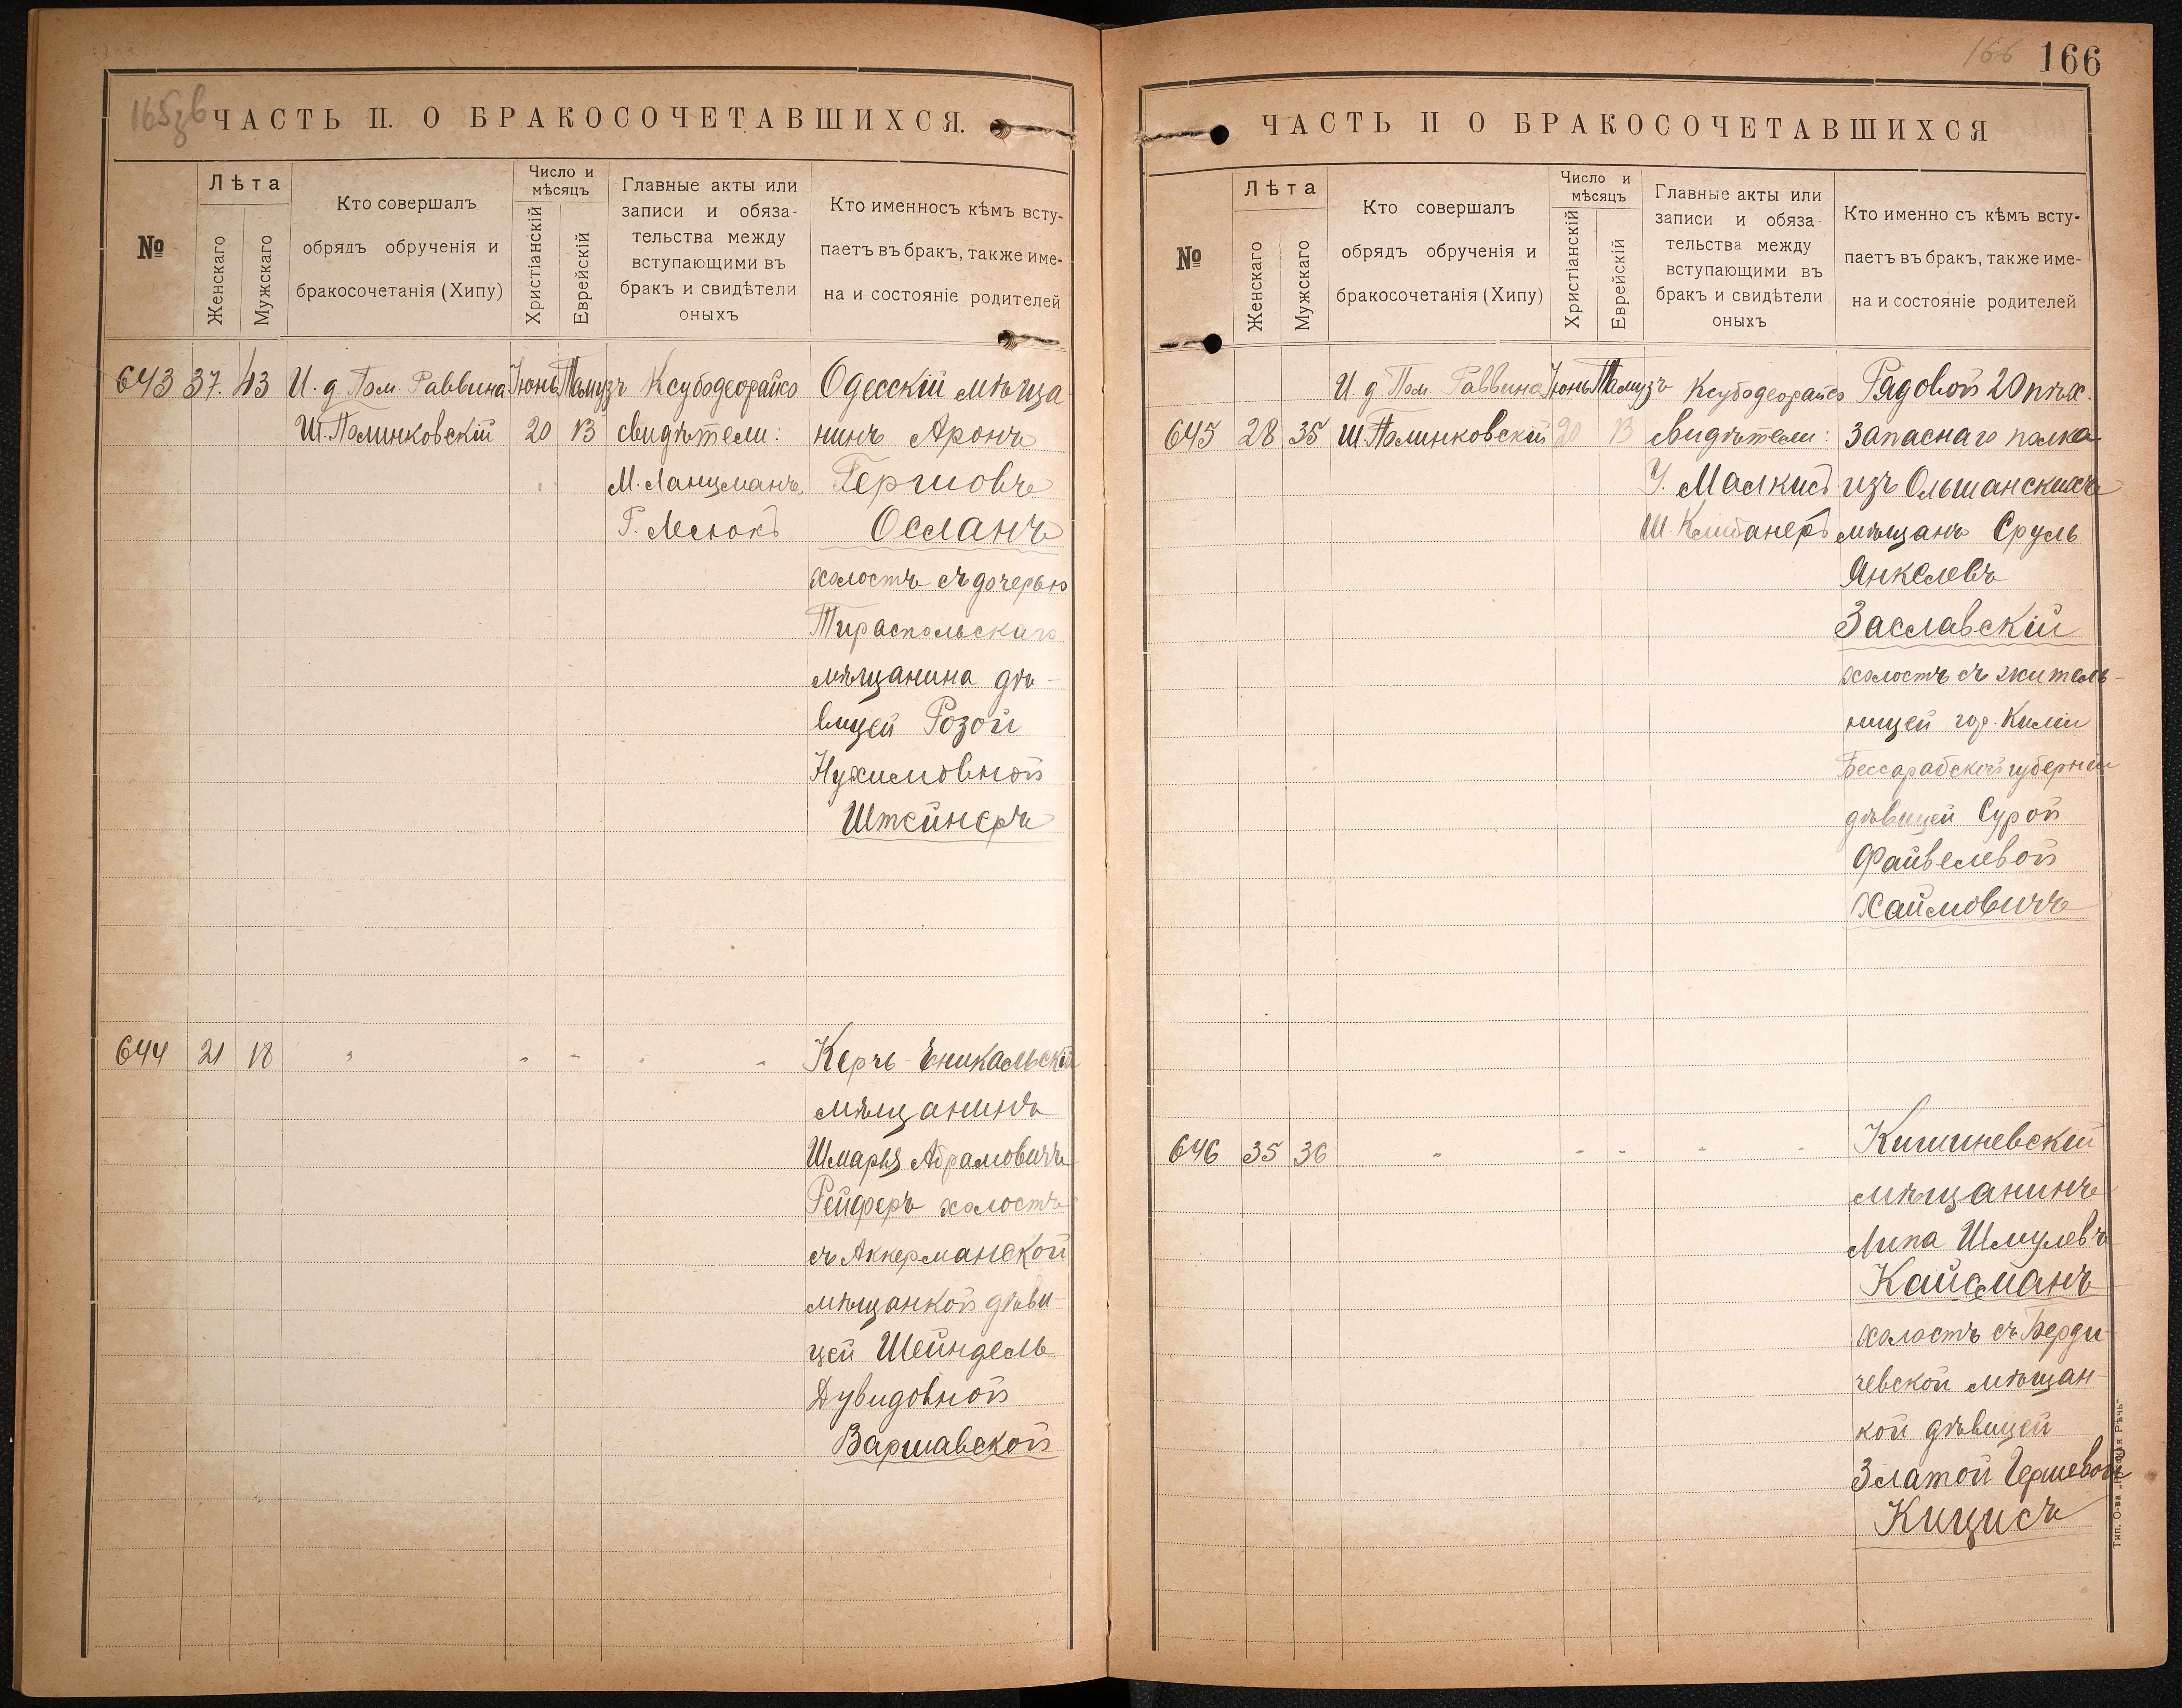 165зв
ЧАСТЬ II. О БРАКОСОЧЕТАВШИХСЯ.
№
Лѣта
Женскаго
Мужскаго
Кто совершалъ
обрядъ обрученія и
бракосочетанія (Хипу)
Число и
мѣсяцъ
Христіанскій
Еврейскій
Главные акты или
записи и обяза-
тельства между
вступающими въ
бракъ и свидѣтели
оныхъ
Кто именносъ кѣмъ всту-
паетъ въ бракъ, также име-
на и состояніе родителей
643 37. 43 И. д. Пом. Раввина Іюнь Тамузъ Ксубодеорайсо Одесскій мѣща
Ш. Полинковскій 20 13 свидѣтели: нинъ Аронъ
М. Ланцманъ, Гершовъ
Г. Меснокъ Осланъ
холостъ съ дочерью
Тираспольскаго
мѣщанина дѣ-
вицей Розой
Нухимовной
Штейнеръ
644 21 18 " " " " " Керчь-Еникальскій
мѣщанинъ
Шмарья Абрамовичъ
Рейферъ холостъ
съ Аккерманской
мѣщанкой дѣви-
цей Шейндель
Дувидовной
Варшавской
166 166
ЧАСТЬ II О БРАКОСОЧЕТАВШИХСЯ
№
Лѣта
Женскаго
Мужскаго
Кто совершалъ
обрядъ обрученія и
бракосочетанія (Хипу)
Число и
мѣсяцъ
Христіанскій
Еврейскій
Главные акты или
записи и обяза-
тельства между
вступающими въ
бракъ и свидѣтели
оныхъ
Кто именно съ кѣмъ всту-
паетъ въ бракъ, также име-
на и состояніе родителей
И д Пом Раввина Іюнь Тамузъ Ксубодеорайсо Рядовой 20 пѣх.
645 28 35 Ш Полинковскій 20 13 свидѣтели: запаснаго полка
У. Малкис изъ Ольшанскихъ
Ш. Клибанеръ мѣщанъ Сруль
Янкелевъ
Заславскій
холостъ съ житель-
ницей гор. Киліи
Бессарабской губерніи
дѣвицей Сурой
Файвелевой
Хаймовичъ
646 35 36 " " " " " Кишиневскій
мѣщанинъ
Липа Шмулевъ
Кайсманъ
холостъ съ Берди
чевской мѣщан-
кой дѣвицей
Златой Гершевой
Кицисъ
Тип. О-ва „ Рѣчь"